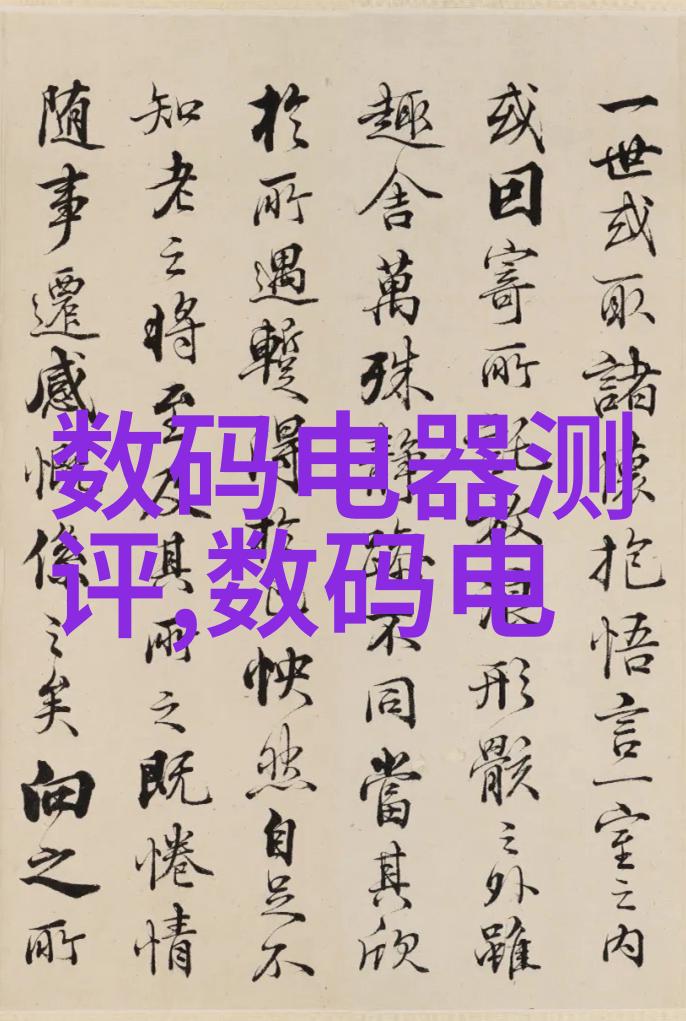 一世或取諸懷抱悟言一室之内
或因寄所託放浪形骸之外雖
趣舍萬殊静躁不同當其欣
於所遇蹔得於己怏然自足不
知老之將至及其所之既惓情
随事遷感慨係之矣向之所
数码电器测
评,数码电